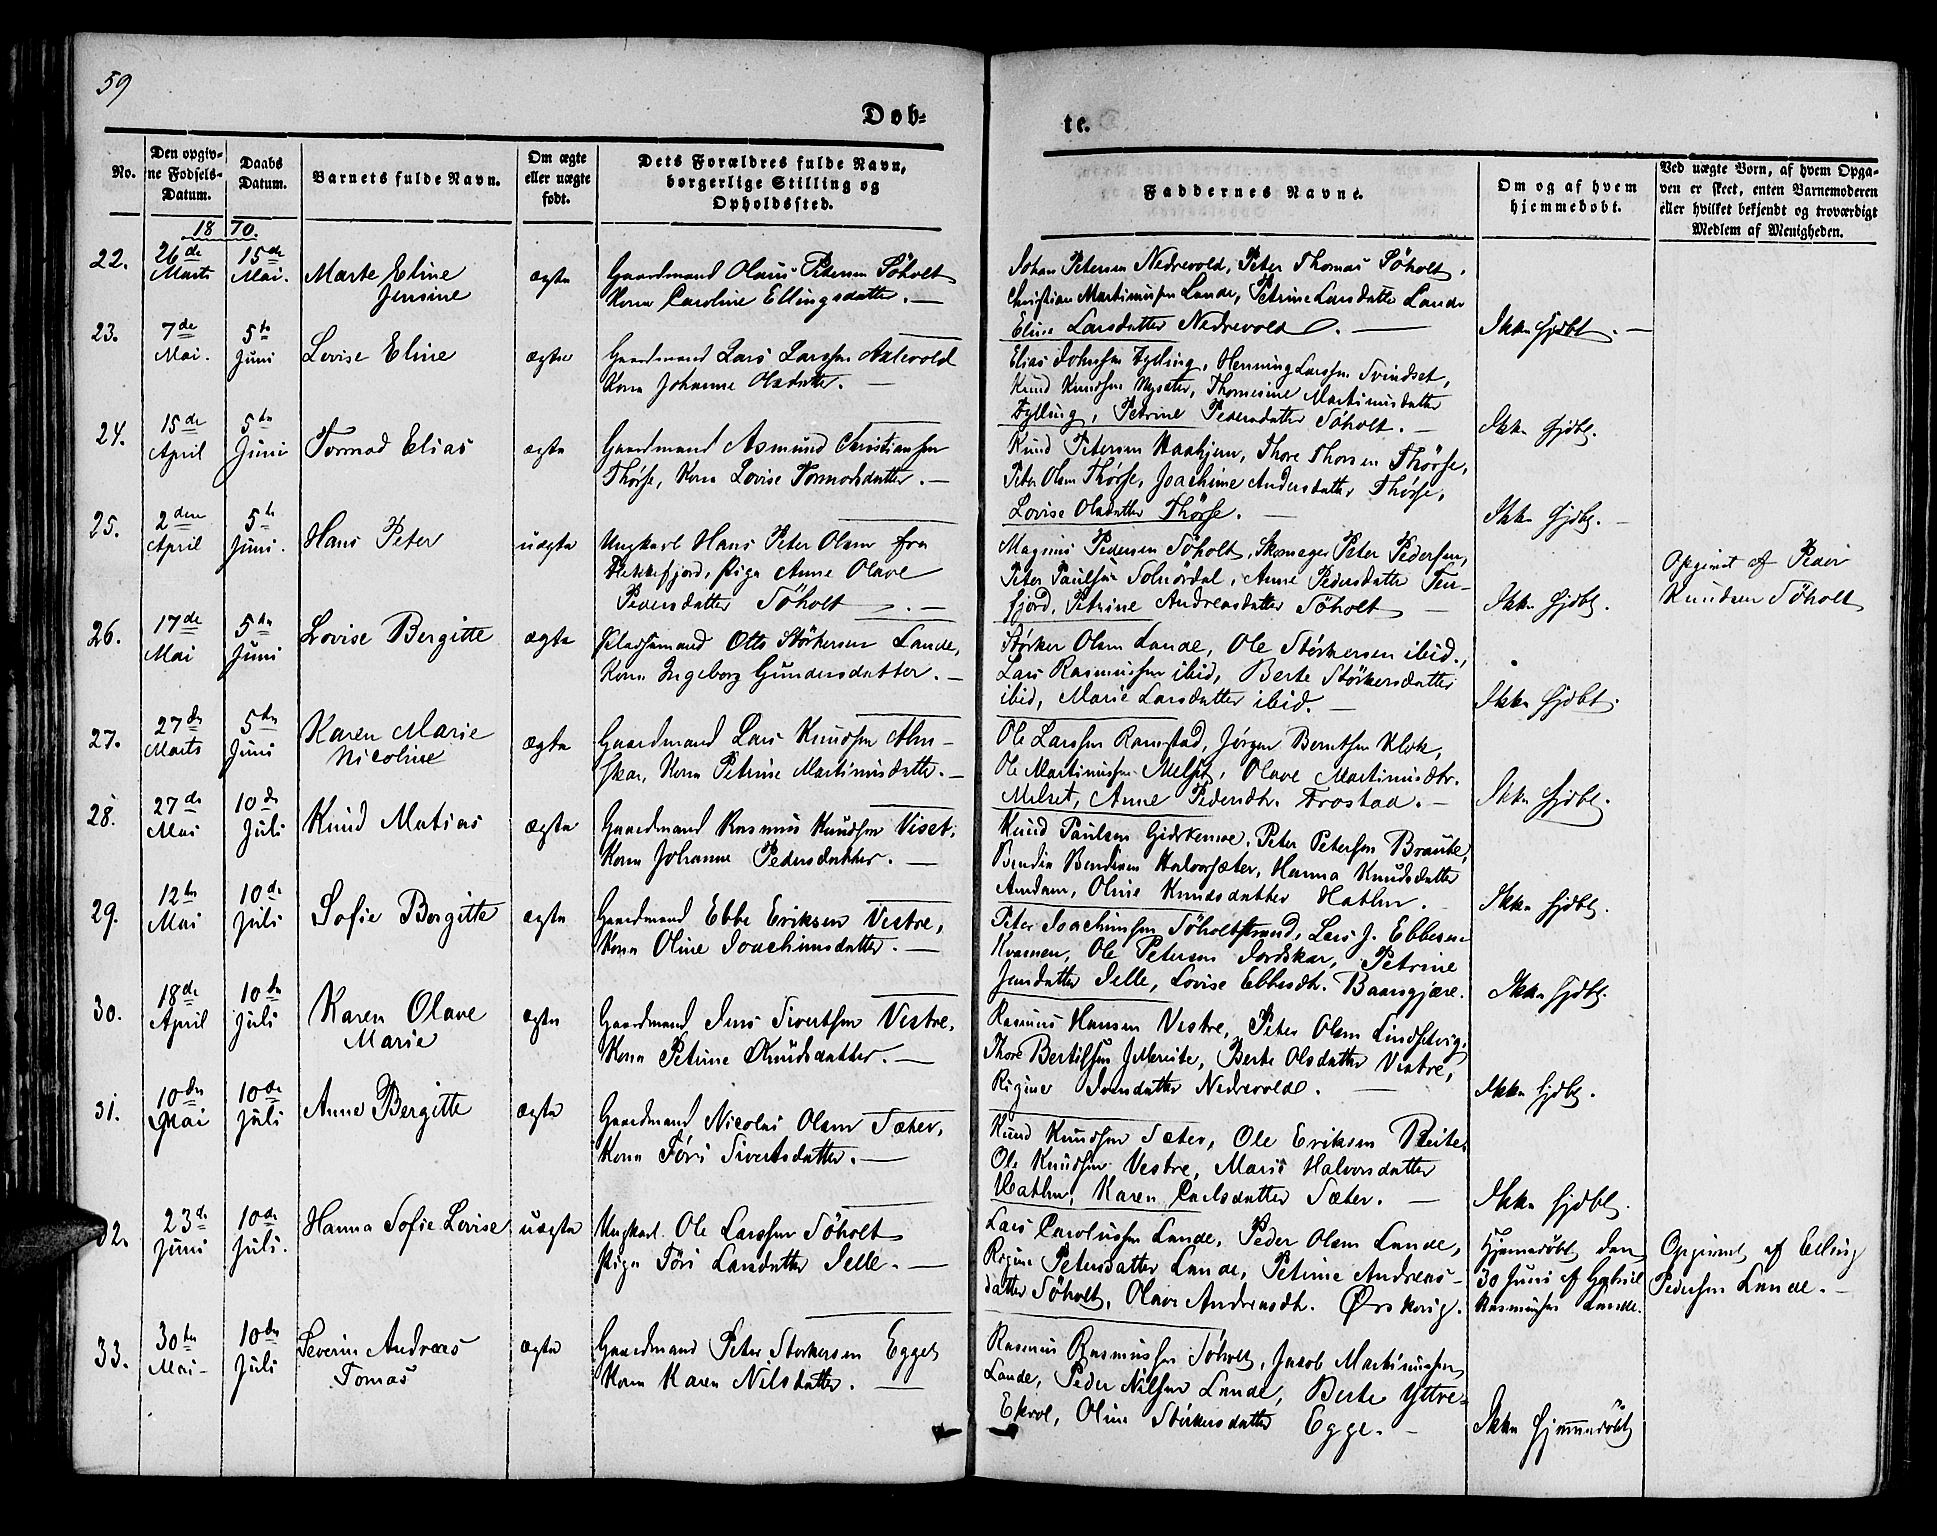 59
Døb-
te.
No.
Den opgiv-
ne Fødsels-
Datum.
Daabs
Datum.
Barnets fulde Navn.
Om ægte
eller uægte
født.
Dets Forældres fulde Navn,
borgerlige Stilling og
Opholdssted.
Faddernes Navne.
Om og af hvem
hjemmedøbt.
Ved uægte Børn, af hvem Opga-
ven er skeet, enten Barnemoderen
eller hvilket bekjendt og troværdigt
Medlem af Menigheden.
1870.
22. 26de Marts 15de Mai. Marte Eline
Jensine
ægte
Gaardmand Olaus Petersen Søholt
Kone Caroline Ellingsdatter. —
Johan Petersen Nedrevold, Peter Thomas Søholt,
Christian Martinussen Lande, Petrine Larsdatter Lande
Eline Larsdatter Nedrevold. —
Ikke hjdbt. —
23. 7de Mai. 5te Juni Lovise Eline
ægte
Gaardmand Lars Larssen Aklevold
Kone Johanne Olsdatter. —
Elias Johnsen Fylling, Henning Larssen Svindset,
Knud Knudsen Nysæter, Thomesine Martinusdatter
Fylling, Petrine Pedersdatter Søholt. —
Ikke hjdbt.
24. 15de April 5te Juni Tormod Elias
ægte
Gaardmand Asmund Christiansen
Thørse, Kone Lovise Tormodsdatter. —
Knud Petersen Haahjem, Thore Thorsen Thørse,
Peter Olsen Thørse, Joachime Andersdatter Thørse,
Lovise Olsdatter Thørse. —
Ikke hjdbt. —
25. 2den April 5te Juni. Hans Peter
uægte
Ungkarl Hans Peter Olsen fra
Flekkefjord, Pige Anne Olave
Pedersdatter Søholt. —
Magnus Pedersen Søholt, Skomager Peter Pedersen,
Peter Paulsen Solnørdal, Anne Pedersdatter Ten-
fjord, Petrine Andreasdatter Søholt —
Ikke hjdbt.
Opgivet af Peder
Knudsen Søholt
26. 17de Mai 5te Juni Lovise Bergitte
ægte
Pladsemand Otto Størkersen Lande,
Kone Ingeborg Gundersdatter. —
Størker Olsen Lande, Ole Størkersen ibid.,
Lars Rasmussen ibid, Berte Størkersdatter
ibid, Marie Larsdatter ibid. —
Ikke hjdbt.
27. 27de Marts 5te Juni Karen Marie
Nicoline
ægte
Gaardmand Lars Knudsen Alm-
skar, Kone Petrine Martinusdatter. —
Ole Larssen Ramstad, Jørgen Berntsen Klok,
Ole Martinussen Melset, Olave Martinusdtr.
Melset, Anne Pedersdtr. Frostad. —
Ikke hjdbt.
28. 27de Mai 10de Juli Knud Matias
ægte
Gaardmand Rasmus Knudsen Viset,
Kone Johanne Pedersdatter. —
Knud Paulsen Giskemoe, Peter Petersen Braute,
Bendix Bendixen Halvorsæter, Hanna Knudsdatter
Amdam, Oline Knudsdatter Hatlen. —
Ikke hjdbt.
29. 12te Mai 10de Juli Sofie Bergitte
ægte
Gaardmand Ebbe Eriksen Vestre,
Kone Oline Joachimsdatter. —
Peter Joachimsen Søholtstrand, Lars J. Ebbesen
Kvamen, Ole Petersen Jordskar, Petrine
Jensdatter Jelle, Lovise Ebbesdtr. Baarsgjære.
Ikke hjdbt.
30. 18de April 10de Juli Karen Olave
Marie
ægte
Gaardmand Jens Sivertsen Vestre,
Kone Petrine Knudsdatter. —
Rasmus Hansen Vestre, Peter Olsen Lindsetvig,
Thore Bertilsen Jelbreite, Berte Olsdatter Vestre,
Rigine Svendatter Nedrevold. —
Ikke hjdbt.
31. 10de Mai 10de Juli Anne Bergitte
ægte
Gaardmand Nicolai Olsen Sæter,
Kone Føri Sivertsdatter. —
Knud Knudsen Sæter, Ole Eriksen Reite
Ole Knudsen Vestre, Maris Halvorsdatter
Hatlen, Karen Carlsdatter Sæter. —
Ikke hjdbt.
32. 23de Juni 10de Juli. Hanna Sofie Lovise
uægte
Ungkarl Ole Larssen Søholt
Pige Føri Larsdatter Jelle. —
Lars Carolussen Lande, Peder Olsen Lande,
Rigine Petersdatter Lande, Petrine Andreas-
datter Søholt, Olave Andreasdtr. Ørskovig.
Hjemmedøbt den
30 Juni af Gabriel
Rasmussen Lande.
Opgivet af Elling
Pedersen Lande. —
33. 30te Mai 10de Juli Severin Andreas
Tomas
ægte
Gaardmand Peter Storkersen Egge,
Kone Karen Nilsdatter. —
Rasmus Rasmussen Søholt, Jacob Martinussen
Lande, Peder Nilsen Lande, Berte Yttre-
Ekrol, Oline Størkersdatter Egge. —
Ikke hjemmedøbt